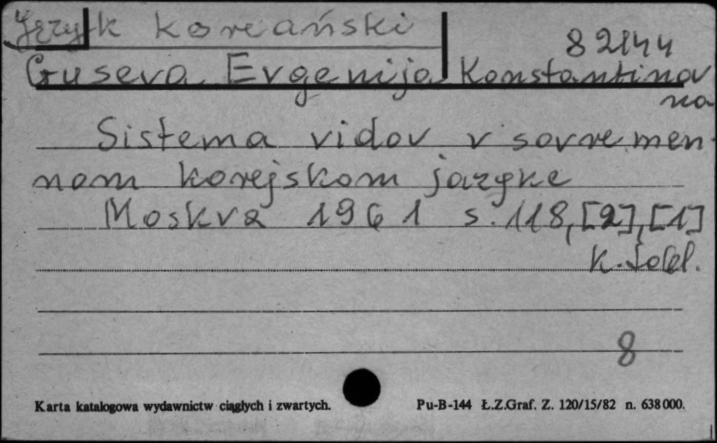 Język koreański
82144
Guseva Evgenija Konstantinov
na
Sistema vidov v sovremen-
nom korejskom jazyke
Moskva 1961 s. 118, [2], [1]
k.
8
Karta katalogowa wydawnictw ciągłych i zwartych.
Pu-B-144 Ł.Z.Graf. Z. 120/15/82 n. 638000.